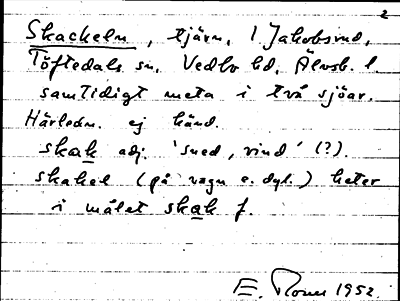 2
Skackeln, tjärn, i Jakobsrud,
Töftedals sn, Vedbo hd, Älvsb. l.
samtidigt meta i två sjöar.
Härledn. ej känd.
skak adj. 'sned, vind' (?).
skakel (på vagn e. dyl.) heter
i målet skak f.
E. 1952.